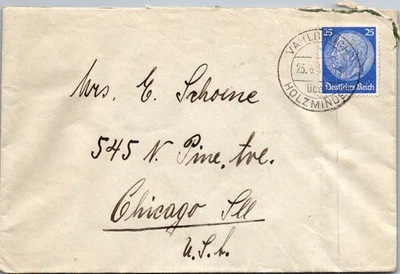 25 25
Deutsches Reich
HOLZMINDEN
Mrs. E. Schoene
545 N. Pine, Ave.
Chicago Ill
U.S.A.